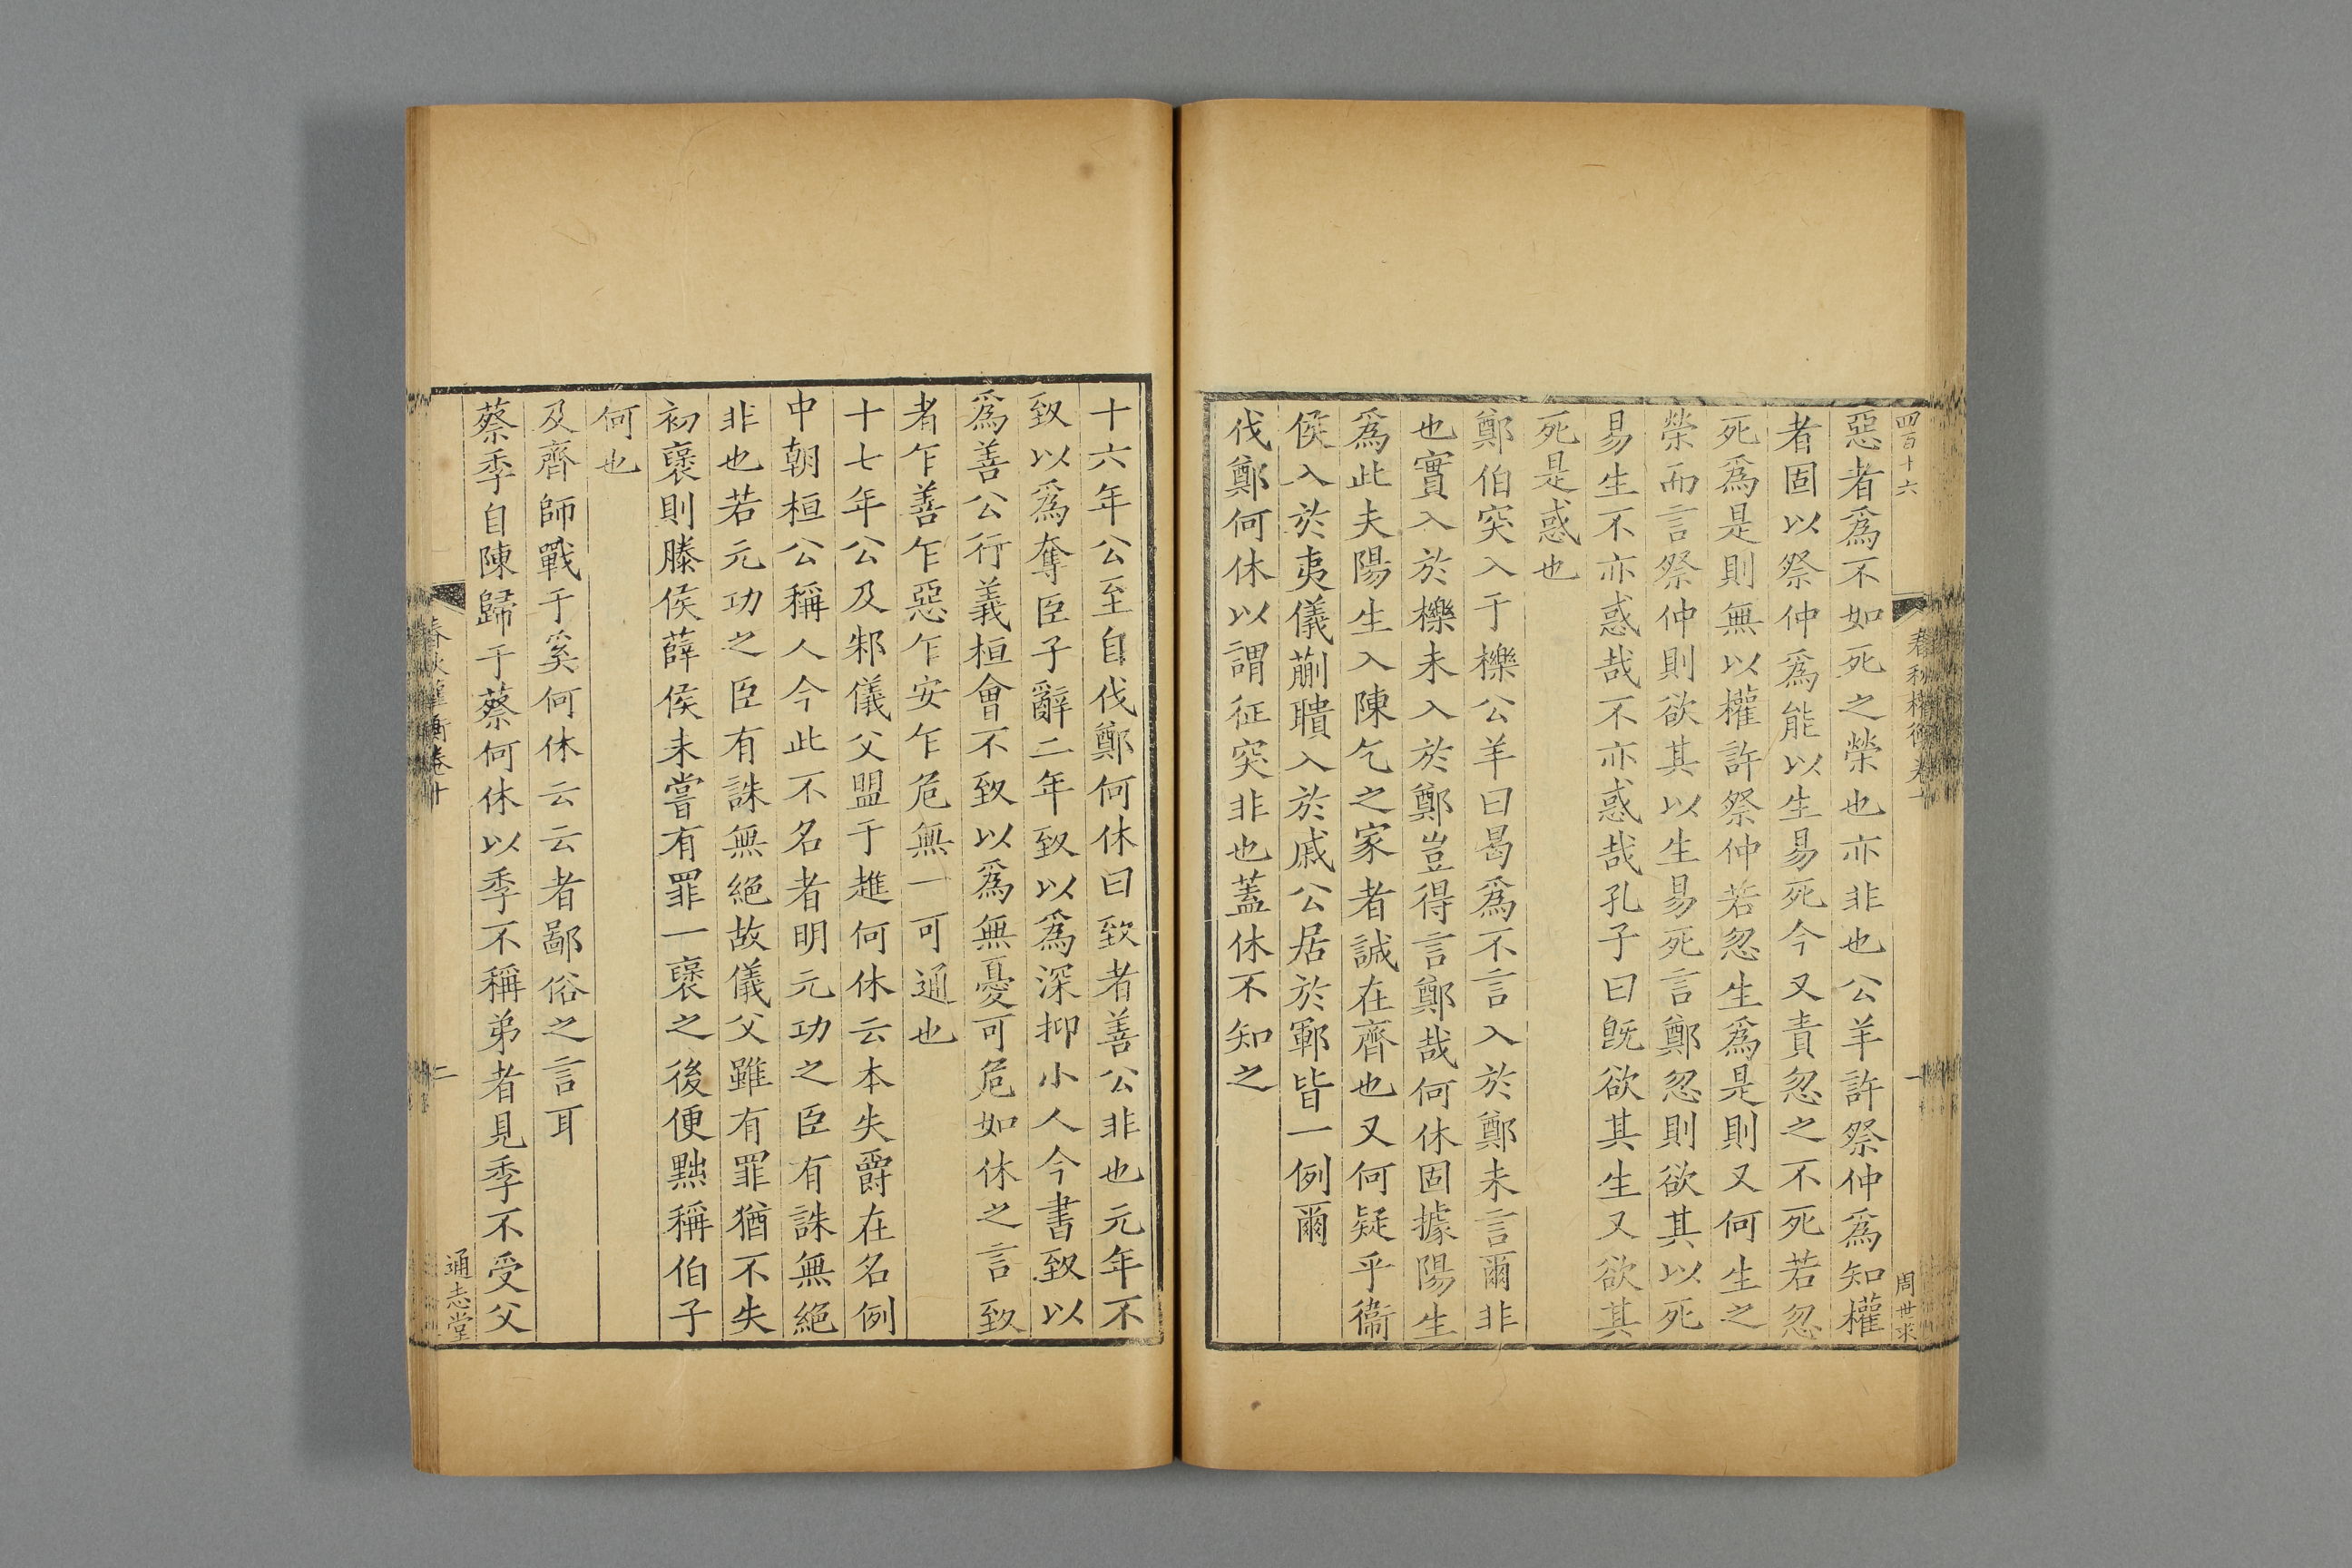 四百十六
春秋權衡卷十
一
周世求
惡者爲不如死之榮也亦非也公羊許祭仲爲知權
者固以祭仲爲能以生易死今又責忽之不死若忽
死爲是則無以權許祭仲若忽生爲是則又何生之
榮而言祭仲則欲其以生易死言鄭忽則欲其以死
易生不亦惑哉不亦惑哉孔子曰旣欲其生又欲其
死是惑也
鄭伯突入于櫟公羊曰曷爲不言入於鄭未言爾非
也實入於櫟未入於鄭豈得言鄭哉何休固據陽生
爲此夫陽生入陳乞之家者誠在齊也又何疑乎衞
侯入於夷儀蒯聵入於戚公居於鄆皆一例爾
伐鄭何休以謂征突非也蓋休不知之
十六年公至自伐鄭何休曰致者善公非也元年不
致以爲奪臣子辭二年致以爲深抑小人今書致以
爲善公行義桓會不致以爲無憂可危如休之言致
者乍善乍惡乍安乍危無一可通也
十七年公及邾儀父盟于趡何休云本失爵在名例
中朝桓公稱人今此不名者明元功之臣有誅無絕
非也若元功之臣有誅無絕故儀父雖有罪猶不失
初褒則滕侯薛侯未嘗有罪一褒之後便黜稱伯子
何也
及齊師戰于奚何休云云者鄙俗之言耳
蔡季自陳歸于蔡何休以季不稱弟者見季不受父
春秋權衡卷十
二
通志堂